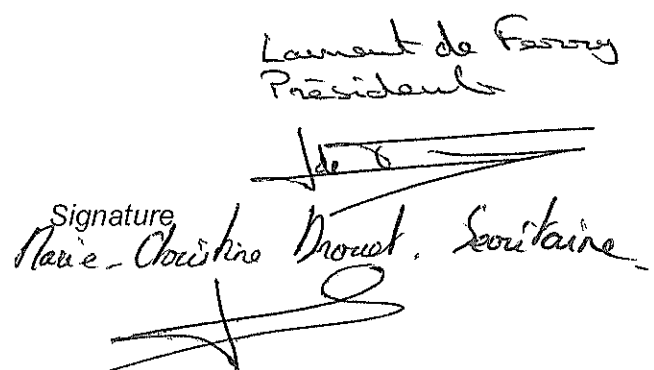 Laurent de Ferry
Président
Signature
Marie-Christine Drouet. Secrétaire